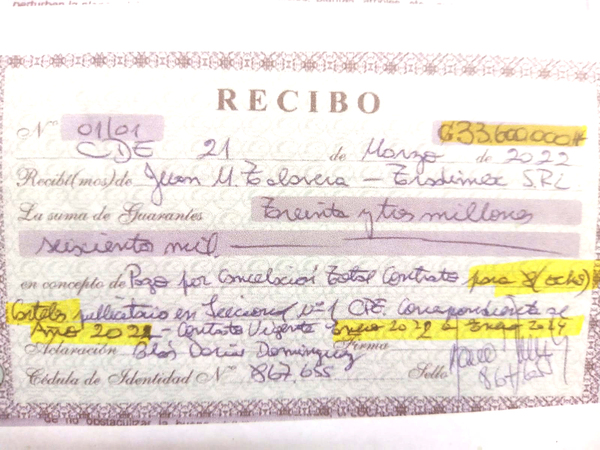 RECIBO
Nº 01/01 ₲33.600.000#
CDE 21 de Marzo de 2022
Recibí(mos) de Juan M. Talavera - Tradimex S.R.L
La suma de Guaraníes Treinta y tres millones
seiscientos mil.
en concepto de Pago por Cancelación Total Contrato para 8 (ocho)
Carteles publicitario en Seccional nº 1 CDE. Correspondiente al
Año 2022 - Contrato Vigente Enero 2022 a Enero 2024
Aclaración Blás Dominguez Firma
Cédula de Identidad Nº 867.655 Sello
de no obstaculizar la